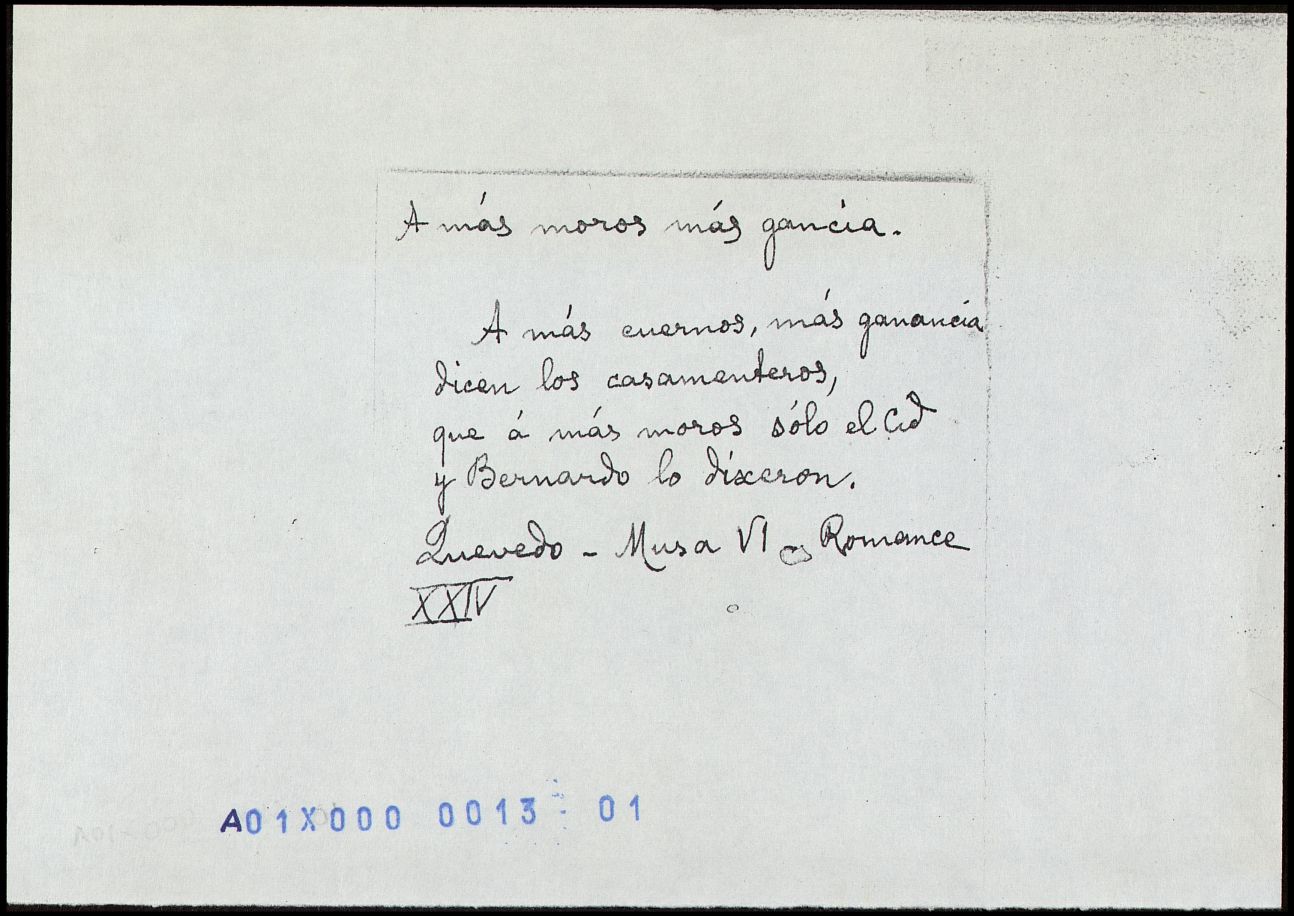 A más moros más gancia.
A más cuernos, más ganancia
dicen los casamenteros,
que á más moros sólo el Cid
y Bernardo lo dixeron.
Quevedo - Musa VI - Romance
XXIV
A01X000 0013 01